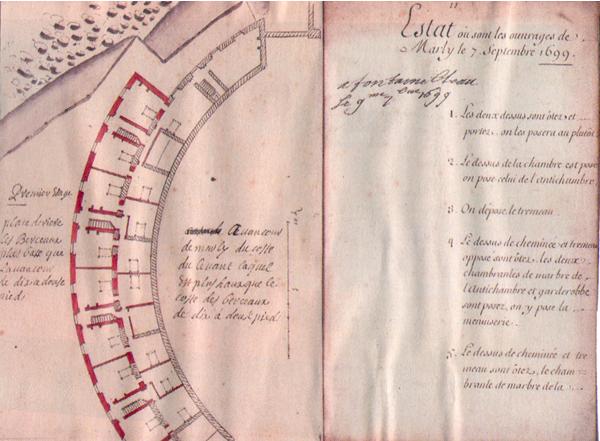 Premier Etage
plan de
les Berceaux
plus bas que
Lauancour
de dix a douse
pied
Auancour
de marly du coste
du leuant Laquel
est plus haux que le
coste des berceaux
de dix a douse pied
11
Estat où sont les ouvrages de
Marly le 7. Septembre 1699.
a fontaine bleau
le 9me 7bre 1699
1. Les deux dessus sont ôtez et
portez. on les posera au plutôt
2. Le dessus de la chambre est posé
on pose celui de l'antichambre.
3. On dépose le tremeau.
4. Le dessus de cheminée et tremeau
opposé sont ôtez. les deux
chambranles de marbre de
l'antichambre et garderobbe
sont posez, on y pose la
menuiserie.
5. Le dessus de cheminée et tre
meau sont ôtez, le cham
branle de marbre de la